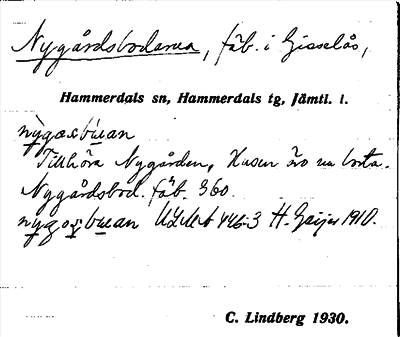 Nygårdsbodarna, fäb. i Gisselås,
Hammerdals sn, Hammerdals tg, Jämtl. l.
Tillhöra Nygården, Husen äro nu borta.
Nygårdsbod. fäb. 360.
H. Geijer 1910.
C. Lindberg 1930.